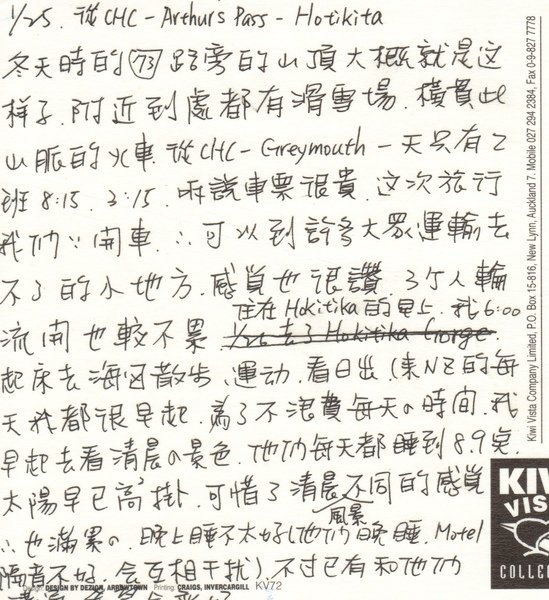 1/25. 從CHC - Arthur's Pass - Hotikita
冬天時的(73)路旁的山頂大概就是这
样子.附近到處都有滑雪場.橫貫此
山脈的火車從CHC - Greymouth 一天只有2
班 8:15. 3:15. 听說車票很貴.这次旅行
我們∵開車.∴可以到許多大眾運輸去
不了的小地方.感覚也很讚.3个人輪
流開也較不累.
住在Hokitika的早上.我6:00
起床去海边散步.運动.看日出.(來NZ的每
天我都很早起.為了不浪費每天の時間.我
早起去看清晨の景色.他们每天都睡到8.9点.
太陽早已高掛.可惜了清晨不同的感覚
風景
∴也滿累の.晚上睡不太好(他们晚睡.Motel
隔音不好.会互相干扰)不过已有和他们
Design: DESIGN BY DEZIGN, ARROWTOWN Printing: CRAIGS, INVERCARGILL KV72
Kiwi Vista Company Limited, P.O. Box 15-816, New Lynn, Auckland 7. Mobile 027 294 2384, Fax 0-9-827 7778
KIW
VIS
COLLE